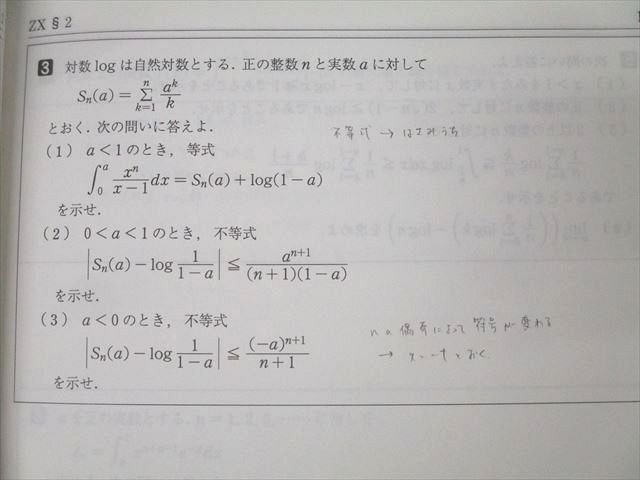 ZX § 2
3 対数 log は自然対数とする. 正の整数 n と実数 a に対して
S_n(a) = \sum_{k=1}^{n} \frac{a^k}{k}
とおく. 次の問いに答えよ.
不等式 → はさみうち
(1) a < 1 のとき, 等式
\int_0^a \frac{x^n}{x-1} dx = S_n(a) + log(1-a)
を示せ.
(2) 0 < a < 1 のとき, 不等式
|S_n(a) - log \frac{1}{1-a}| ≦ \frac{a^{n+1}}{(n+1)(1-a)}
を示せ.
(3) a < 0 のとき, 不等式
nの偶奇によって符号が変わる
|S_n(a) - log \frac{1}{1-a}| ≦ \frac{(-a)^{n+1}}{n+1}
→ x = -t とおく
を示せ.